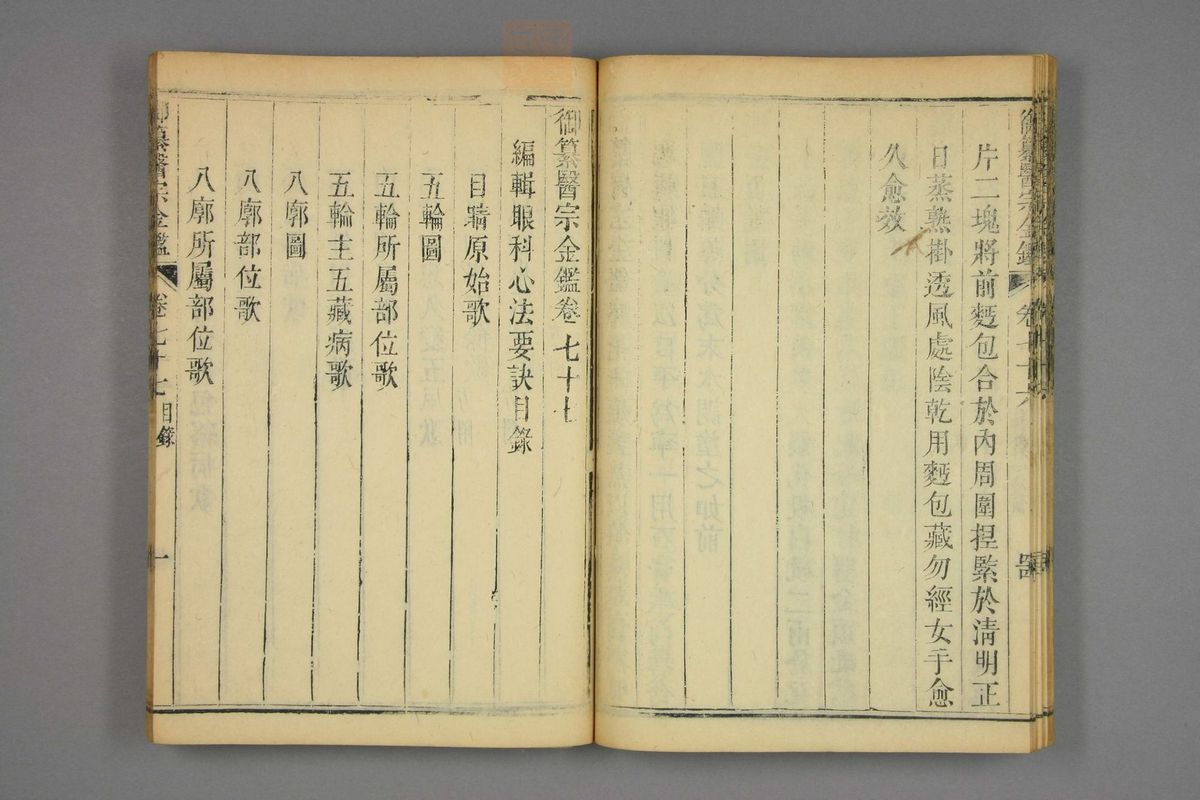 御纂醫宗金鑑 卷七十六
片二塊將前麪包合於內周圍捏緊於清明正
日蒸熟掛透風處陰乾用麪包藏勿經女手愈
久愈效
御纂醫宗金鑑卷七十七
編輯眼科心法要訣目錄
目睛原始歌
五輪圖
五輪所屬部位歌
五輪主五藏病歌
八廓圖
八廓部位歌
八廓所屬部位歌
御纂醫宗金鑑 卷七十七 目錄 一